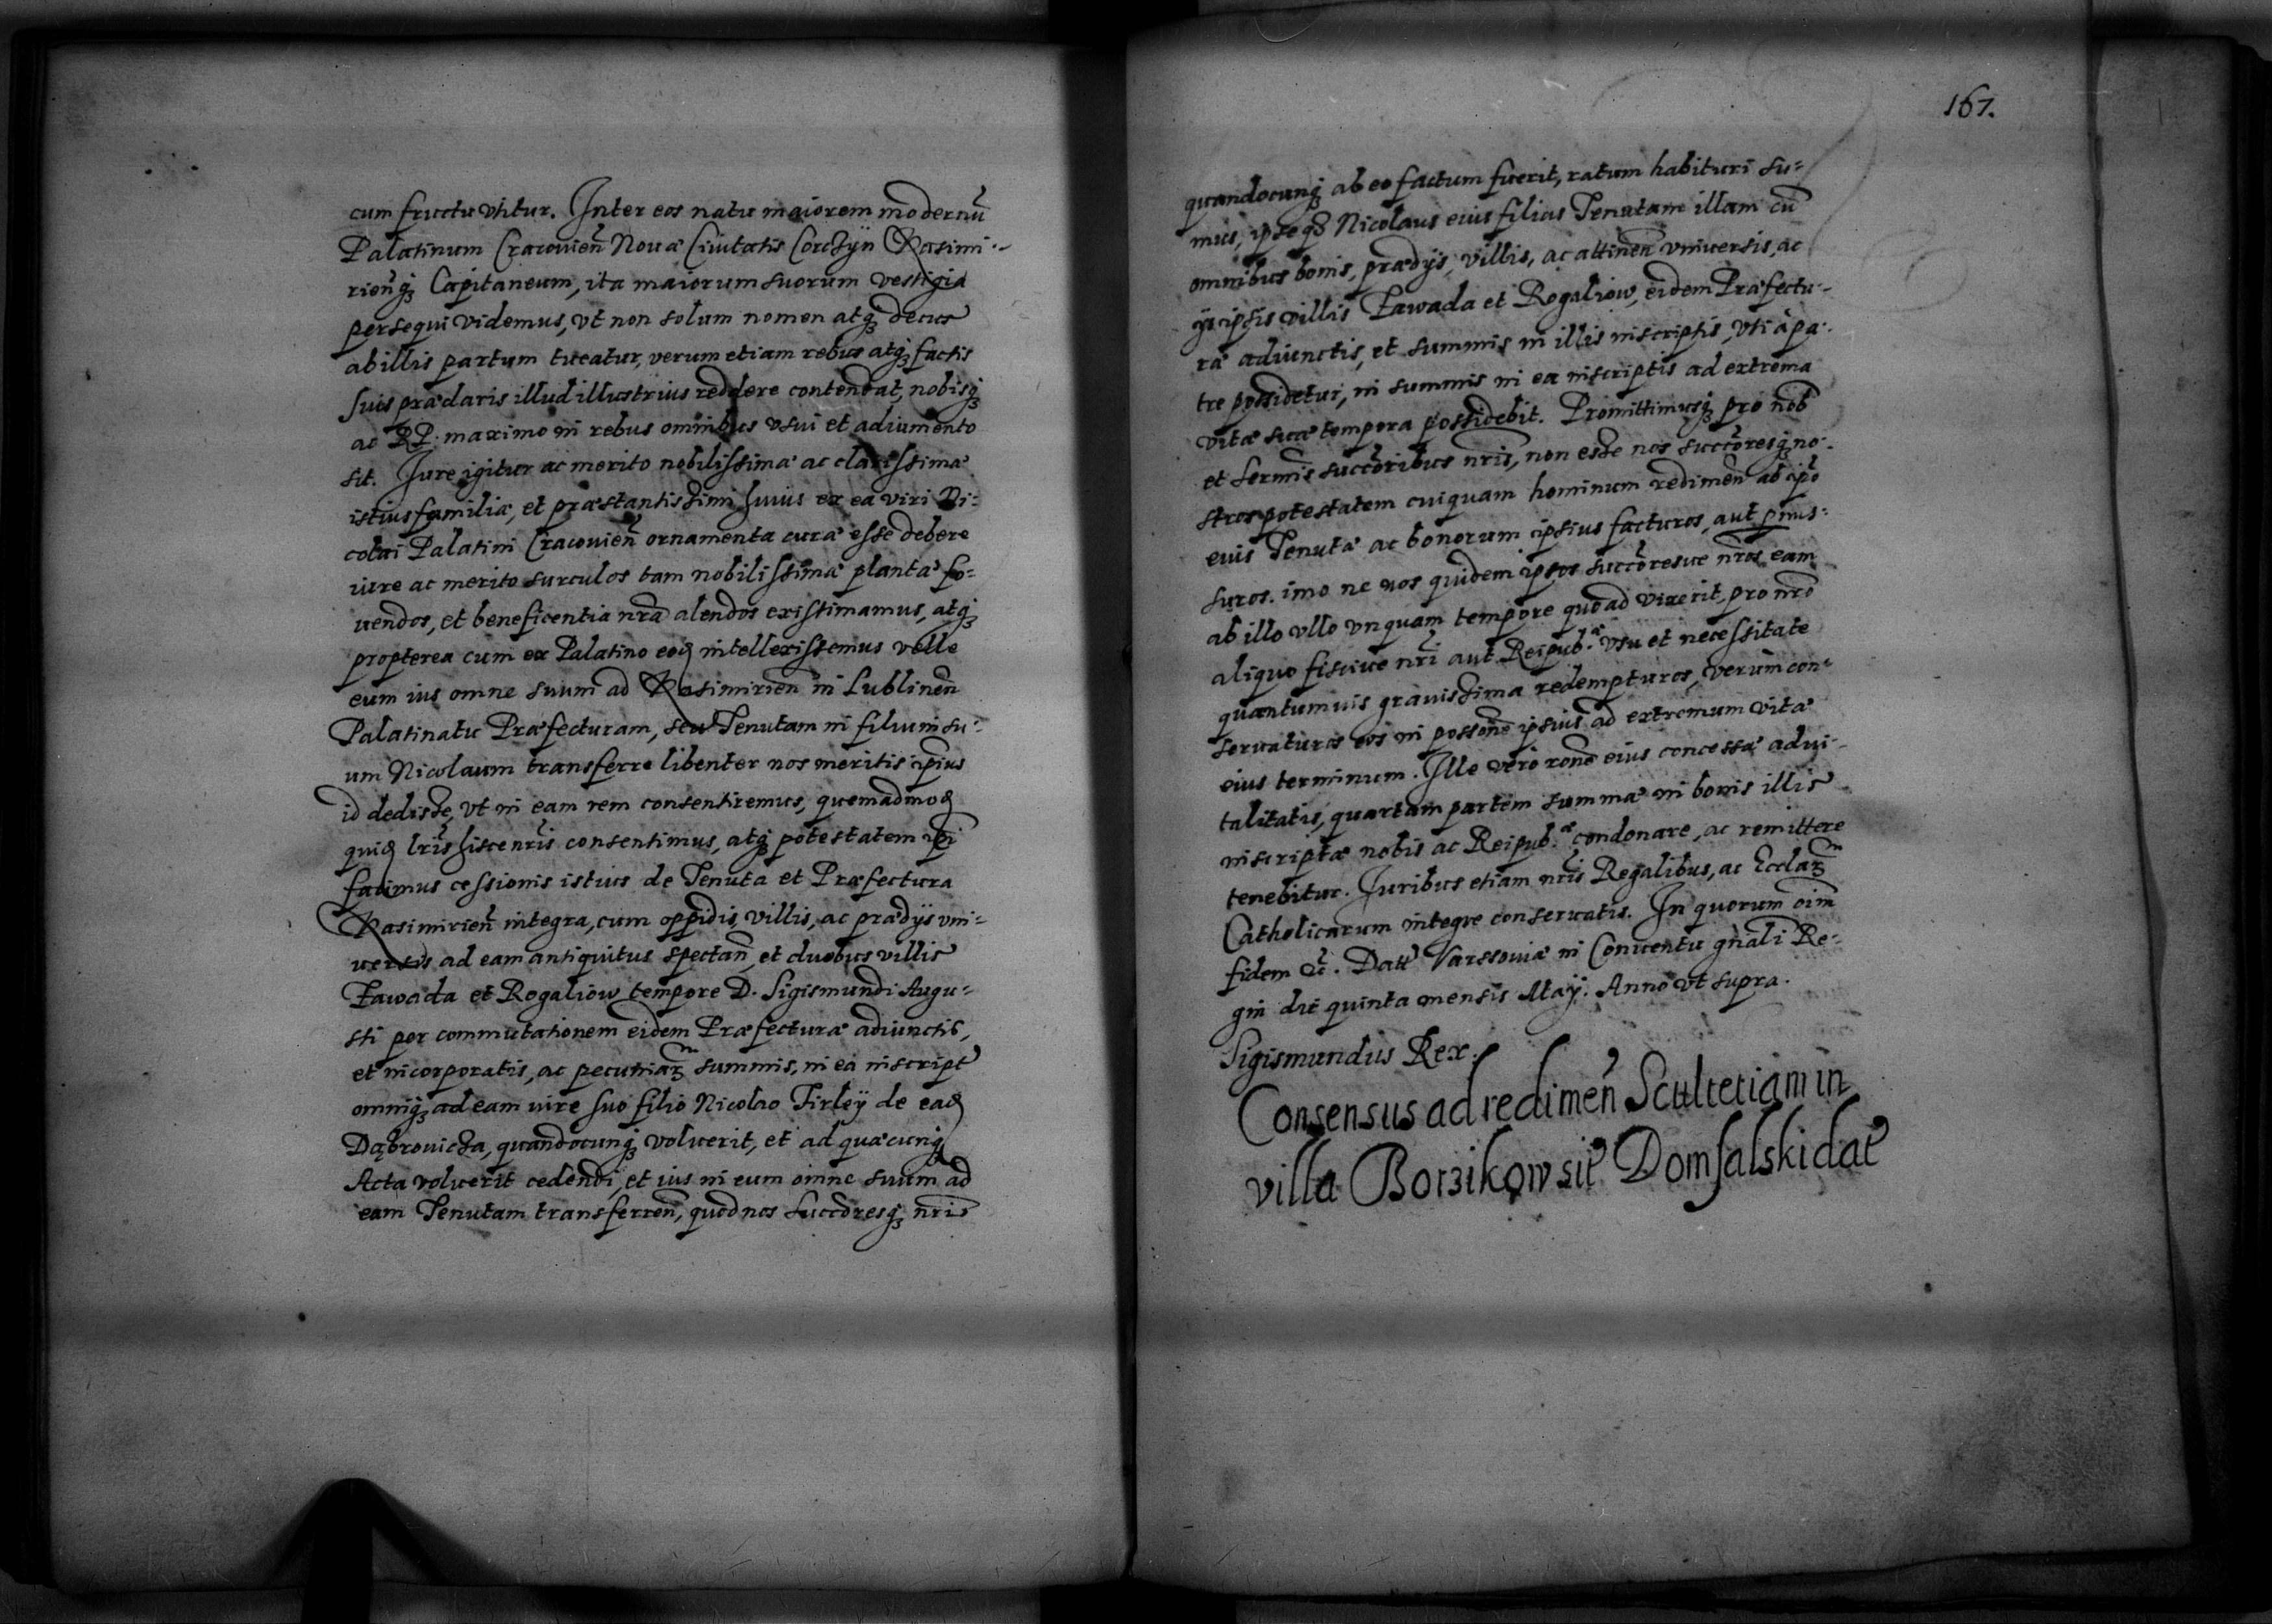 cum fructu vtitur. Inter eos natu maiorem modernũ
Palatinum Cracovien̄ Novæ Civitatis Corczÿn Casimi-
rien̄q₃ Capitaneum, ita maiorum suorum vestigia
persequi videmus, vt non solum nomen atq₃ decus
ab illis partum tueatur, verum etiam rebus atq₃ factis
suis præclaris illud illustrius reddere contendat, nobisq₃
ac RP. maximo in rebus omnibus vsui et adiumento
sit. Jure igitur ac merito nobilissimæ ac clarissimæ
istius familiæ, et præstantissimi huius ex ea viri Ni-
colai Palatini Cracovien̄ ornamenta curæ esse debere
iure ac merito surculos tam nobilissimæ plantæ fo-
uendos, et beneficentia nr̄a alendos existimamus, atq₃
propterea cum ex Palatino eod intellexissemus velle
eum ius omne suum ad Casimirien̄ in Lublinen̄
Palatinatu Præfecturam, seu Tenutam in filium su-
um Nicolaum transferre libenter nos meritis ip̄ius
id dedisse, vt in eam rem consentiremus, quemadmod
quid lr̄is hisce nr̄is consentimus, atq₃ potestatem ip̄i
facimus cessionis istius de Tenuta et Præfectura
Casimirien̄ integra, cum oppidis, villis, ac prædijs vni-
uersis ad eam antiquitus spectan̄, et duobus villis
Ławada et Rogaliow tempore D. Sigismundi Augu-
sti per commutationem eidem Præfecturæ adiunctis,
et incorporatis, ac pecuniar₃ summis, in ea inscript
omniq₃ ad eam iure suo filio Nicolao Firleÿ de ead
Dąbrovicza, quandocunq₃ voluerit, et ad quæcunq₃
Acta voluerit cedendi, et ius in eum omne suum ad
eam Tenutam transferren̄, quod nos succōresq₃ nr̄i
167.
quandocunq₃ ab eo factum fuerit, ratum habituri su-
mus, ipseq₃ Nicolaus eius filius Tenutam illam cū
omnibus bonis, prædijs, villis, ac attinen̄ vniuersis, ac
ijs ipsis villis Ławada et Rogaliow, eidem Præfectu-
ræ adiunctis, et summis in illis inscriptis, vti à pa-
tre possidetur, in summis in ea inscriptis ad extrema
vitæ suæ tempora possidebit. Promittimusq₃ pro nob
et serm̄is succōribus nr̄is, non esse nos succōresq₃ no-
stros potestatem cuiquam hominum redimen̄ ab ip̄o
eius Tenutæ ac bonorum ipsius facturos, aut pmis-
suros. imo ne nos quidem ipsos succōresue nr̄os eam
ab illo vllo vnquam tempore quoad vixerit, pro nr̄o
aliquo fisciue nr̄i aut Reipub.æ vsu et necessitate
quantumuis grauissima redempturos, verum con-
seruaturos eos in possōne ipsius ad extremum vitæ
eius terminum. Ille vero rōne eius concessæ advi-
talitatis, quartam partem summæ in bonis illis
inscriptæ nobis ac Reipub.æ condonare, ac remittere
tenebitur. Juribus etiam nr̄is Regalibus, ac Eccl̄ar₃
Catholicarum integre conseruatis. In quorum oīm
fidem &c̄. Datt Varssoviæ in Conuentu gn̄ali Re-
gni die quinta mensis Maÿ. Anno vt supra.
Sigismundus Rex.
Consensus ad redimen̄ Scultetiam in
villa Borzikow sit Domsalski dat